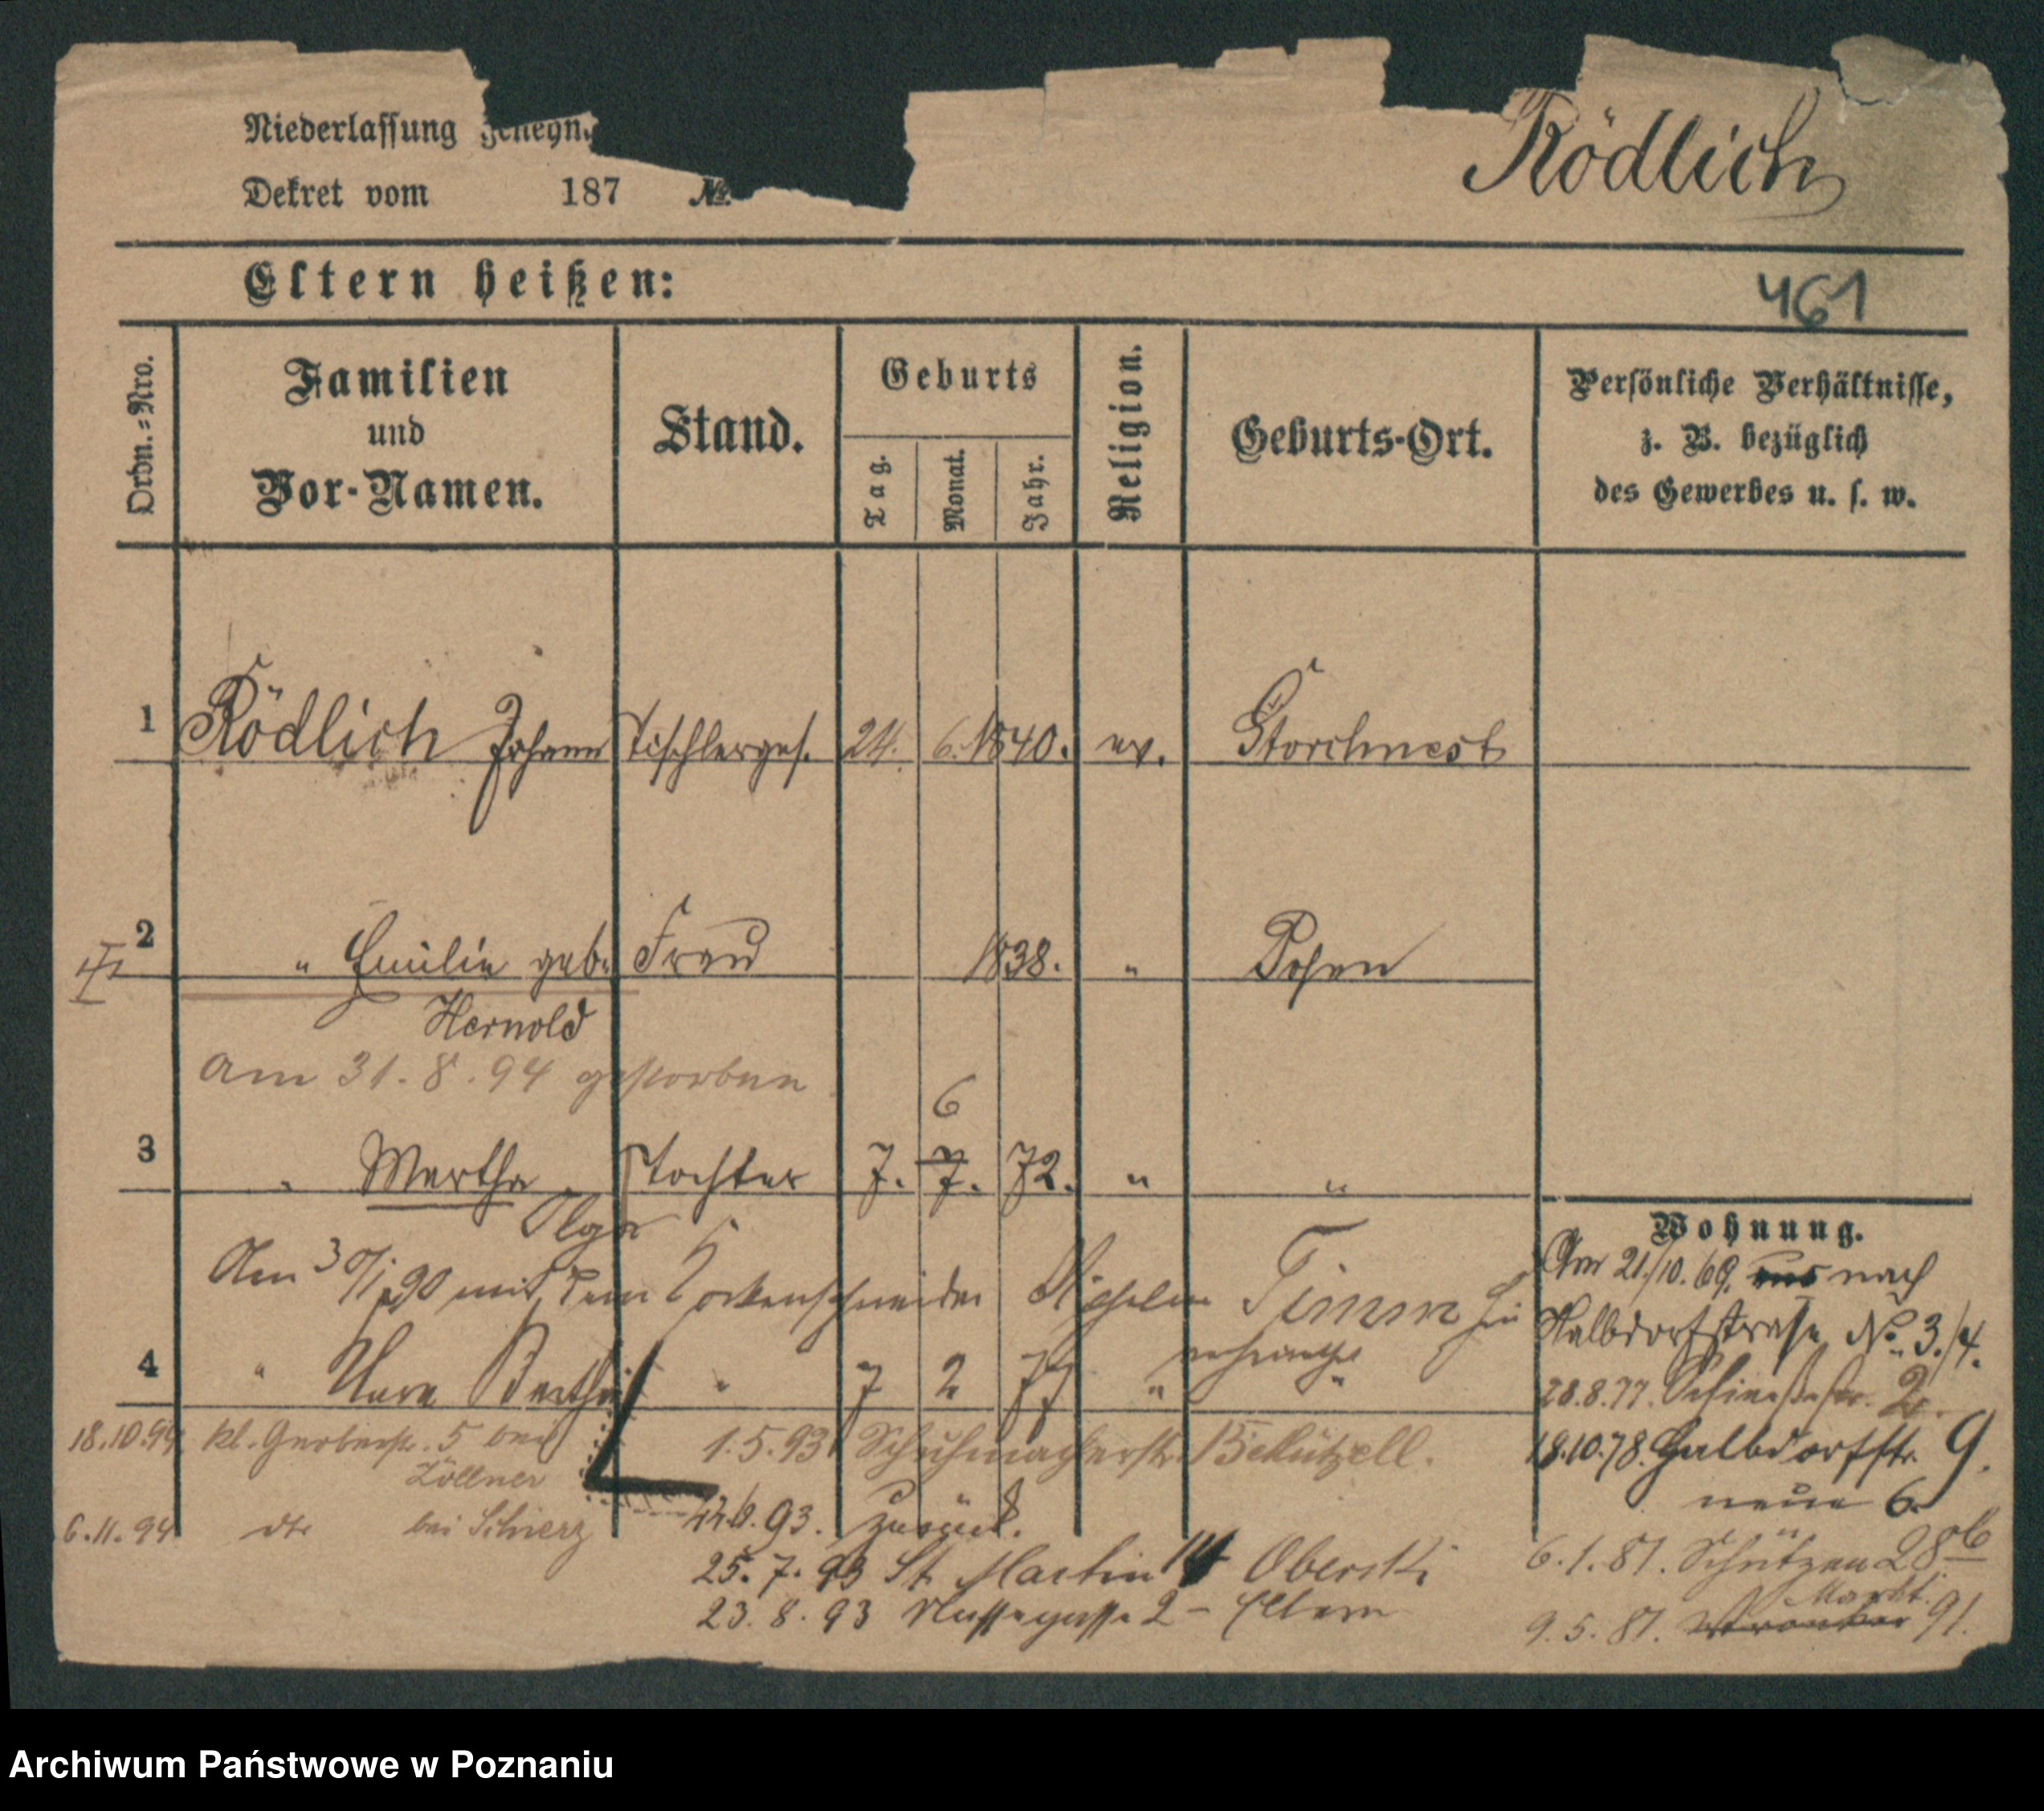 Niederlassung genehm
Dekret vom 187 No.
Rödlich
Eltern heißen:
461
Ordn.-Nro.
Familien
und
Vor-Namen.
Stand.
Geburts
Tag.
Monat.
Jahr.
Religion.
Geburts-Ort.
Persönliche Verhältnisse,
z. B. bezüglich
des Gewerbes u. s. w.
1 Rödlich Johann Tischlerges. 24. 6. 1840. ev. Storchnest
2 " Emilie geb. Frau 1838. " Posen
Hernold
am 31.8.94 gestorben
6
3 " Martha Tochter 7. 7. 72. " "
Olga
Wohnung.
Am 30/1 90 mit dem Timm
Am 21./10. 69. aus nach
Halbdorfstraße No. 3./4.
verheirathet
4 " Bertha " 7 2 77 " "
28.8.77. 2.
18.10.94 kl. Gerberstr. 5 bei
Zöllner
1.5.93 Schuhmacherstr.
18.10.78. Halbdorfstr. 9.
neue 6.
6.11.94 dto bei Schierz
93. zurück.
25.7.93 St. Martin 14 Oberski
6.1.81. Schützen 28b
23.8.93 2 - Eltern
Markt
9.5.81. Wronker 91.
Archiwum Państwowe w Poznaniu